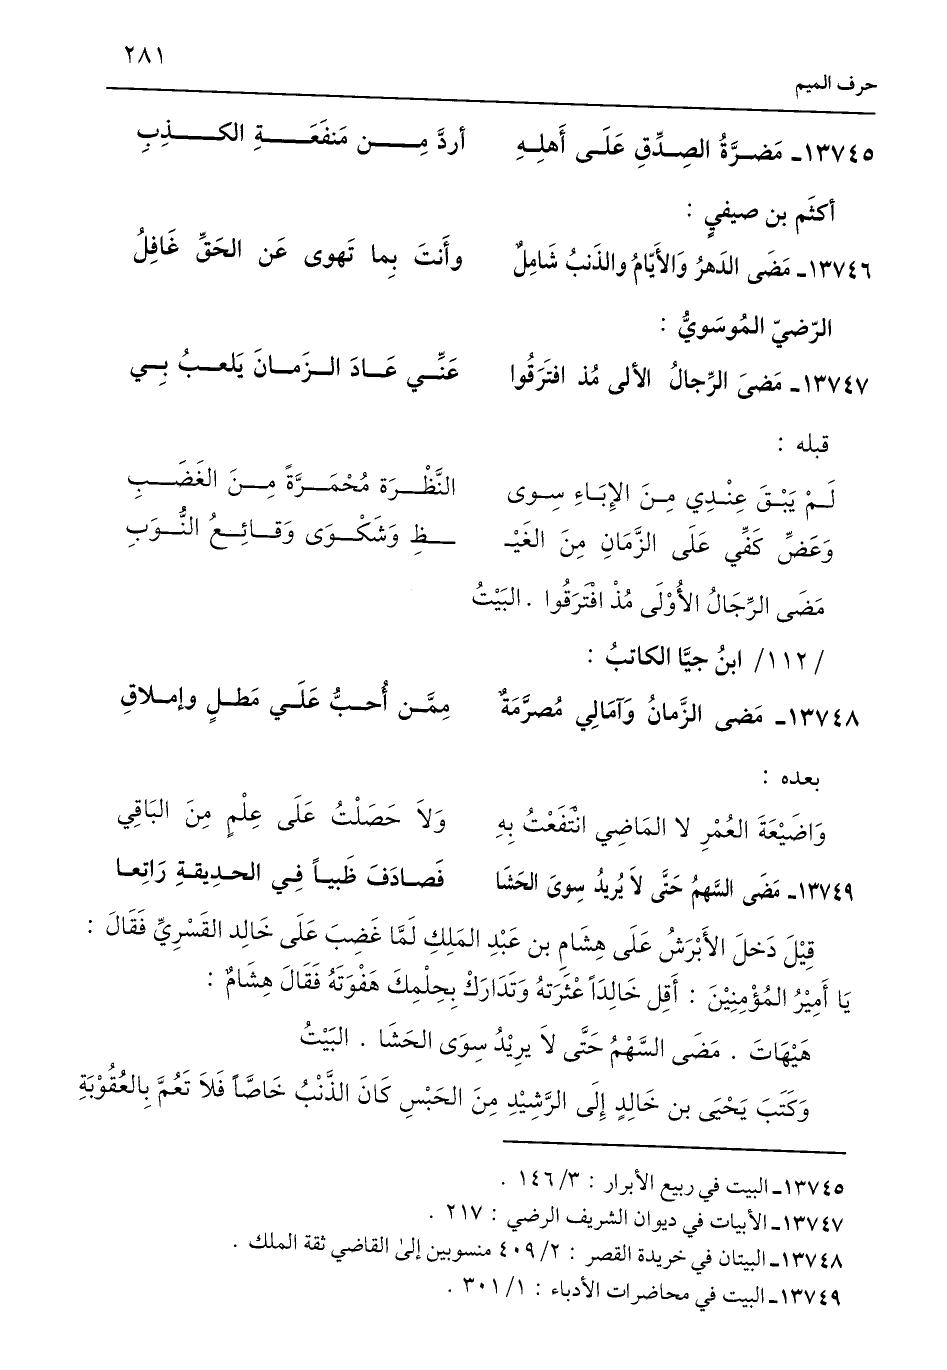 ٢٨١
حرف الميم
١٣٧٤٥ـ مَضرَّةُ الصِدِّقِ عَلَى أَهلِهِ أردَّ مِن مَنفَعَةِ الكذِبِ
أكثَم بن صيفيٍ :
١٣٧٤٦ـ مَضَى الدَهرُ وَالأَيَّامُ والذَنبُ شَامِلٌ وأَنتَ بِما تَهوى عَن الحَقِّ غَافِلُ
الرّضيّ المُوسَويُّ :
١٣٧٤٧ـ مَضىَ الرِّجالُ الألى مُذ افتَرَقُوا عَنِّي عَادَ الزَمانَ يَلعبُ بِي
قبله :
لَمْ يَبْقَ عِنْدِي مِنَ الإِبَاءِ سِوى النَّظْرَة مُحْمَرَّةً مِنَ الغَضَبِ
وَعَضِّ كَفِّي عَلَى الزَّمَانِ مِنَ الغَيْـ ـظِ وَشَكْوَى وَقَائِعُ النُّوَبِ
مَضَى الرِّجَالُ الأُوْلَى مُذْ افْتَرَقُوا . البَيْتُ
/ ١١٢/ ابنُ جيَّا الكاتبُ :
١٣٧٤٨ـ مَضى الزَّمانُ وَآمَالِي مُصرَّمَةٌ مِمَّن أُحبُّ عَلَي مَطلٍ وإملاقِ
بعده :
وَاضَيْعَةَ العُمْرِ لا المَاضِي انْتَفَعْتُ بِهِ وَلاَ حَصَلْتُ عَلَى عِلْمٍ مِنَ البَاقِي
١٣٧٤٩ـ مَضَى السَّهمُ حَتَّى لاَ يُريدُ سِوىَ الحَشَا فَصادَفَ ظَبياً فِي الحديقةِ رَاتِعا
قِيْلَ دَخلَ الأَبْرَشُ عَلَى هِشَام بن عَبْدِ المَلِكِ لَمَّا غَضِبَ عَلَى خَالِد القَسْرِيِّ فَقَالَ :
يَا أَمِيْرُ المُؤْمِنِيْنَ : أَقِل خَالِدَاً عْثرَتهُ وَتَدَارَكْ بِحِلْمِكَ هَفْوَتَهُ فَقَالَ هِشَامٌ :
هَيْهَاتَ . مَضَى السَّهْمُ حَتَّى لاَ يرِيْدُ سِوَى الحَشَا . البَيْتُ
وَكَتَبَ يَحْيَى بن خَالِدٍ إِلَى الرَّشِيْدِ مِنَ الحَبْسِ كَانَ الذَّنْبُ خَاصَّاً فَلاَ تَعُمَّ بِالعُقُوْبَةِ
١٣٧٤٥ـ البيت في ربيع الأبرار : ٣/ ١٤٦ .
١٣٧٤٧ـ الأبيات في ديوان الشريف الرضي : ٢١٧ .
١٣٧٤٨ـ البيتان في خريدة القصر : ٢/ ٤٠٩ منسوبين إلىٰ القاضي ثقة الملك .
١٣٧٤٩ـ البيت في محاضرات الأدباء : ١/ ٣٠١ .